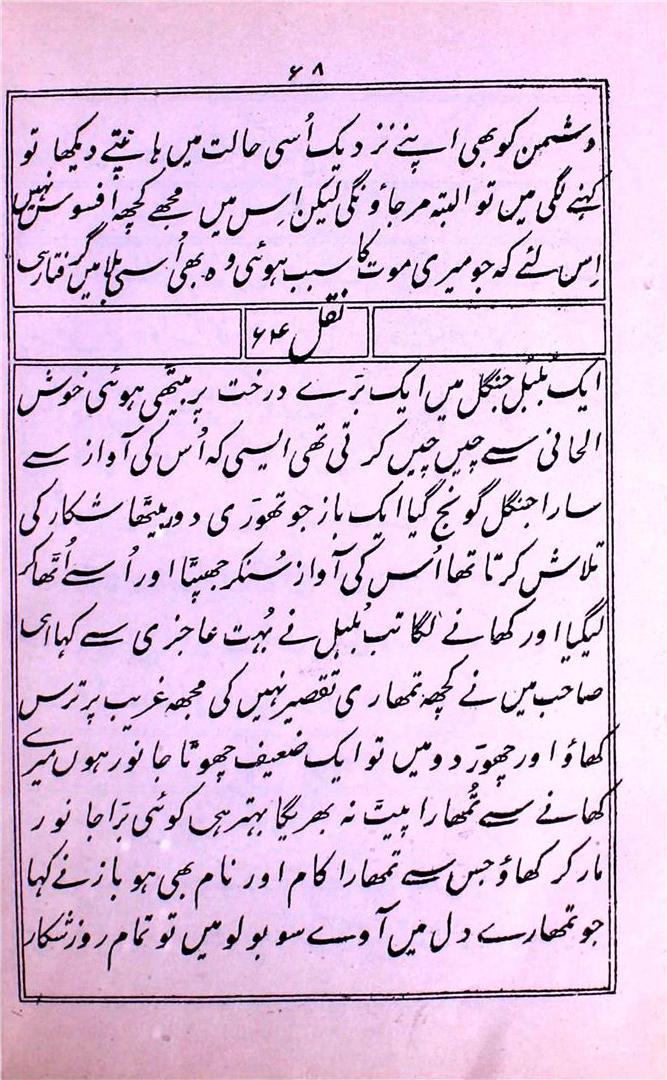 ۶۸
دشمن کو بھی اپنے نزدیک اُسی حالت میں ہانپتے دیکھا تو
کہنے لگی میں تو البتہ مرجاؤنگی لیکن اِس میں مجھے کچھ افسوس نہیں
اِس لئے کہ جو میری موت کا سبب ہوئی وہ بھی اُسی بلا میں گرفتار ہی
نقل ۶۴
ایک بُلبُل جنگل میں ایک بڑے درخت پر بیٹھی ہوئی خوش
الحانی سے چیں چیں کرتی تھی ایسی کہ اُس کی آواز سے
سارا جنگل گونج گیا ایک باز جو تھوڑی دور بیٹھا شکار کی
تلاش کرتا تھا اُس کی آواز سُنکر جھپٹا اور اُسے اُٹھا کر
لیگیا اور کھانے لگا تب بُلبُل نے بُہت عاجزی سے کہا ای
صاحب میں نے کچھ تمھاری تقصیر نہیں کی مجھ غریب پر ترس
کھاؤ اور چھوڑ دو میں تو ایک ضعیف چھوٹا جانور ہوں میرے
کھانے سے تُمھارا پیٹ نہ بھریگا بہتر ہی کوئی بڑا جانور
مار کر کھاؤ جس سے تمھارا کام اور نام بھی ہو باز نے کہا
جو تمھارے دل میں آوے سو بولو میں تو تمام روز شکار